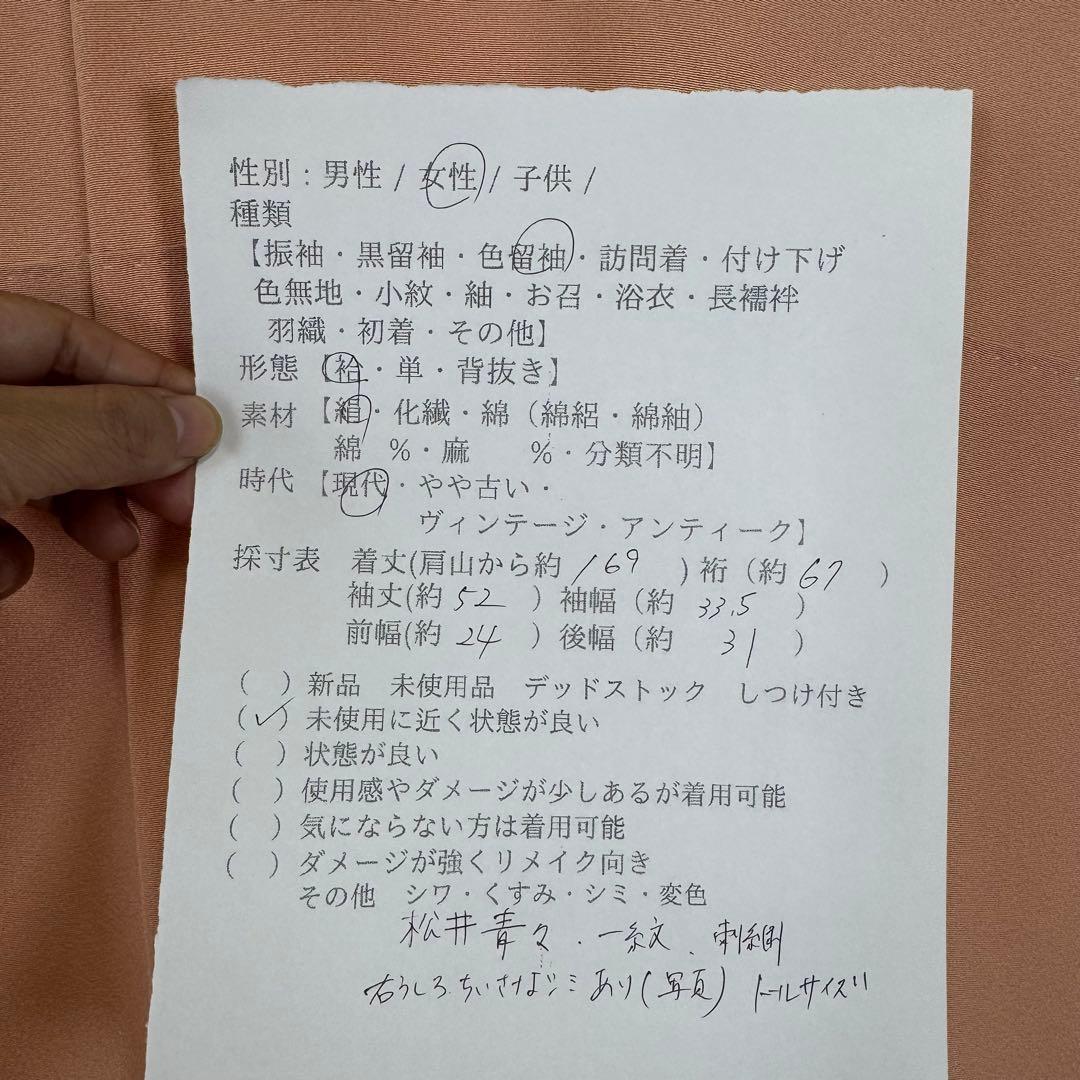 性別：男性 / 女性 / 子供 /
種類
【振袖・黒留袖・色留袖・訪問着・付け下げ
色無地・小紋・紬・お召・浴衣・長襦袢
羽織・初着・その他】
形態 【袷・単・背抜き】
素材 【絹・化繊・綿（綿絽・綿紬）
綿 %・麻 %・分類不明】
時代 【現代・やや古い・
ヴィンテージ・アンティーク】
採寸表 着丈(肩山から約 169 ) 裄（約 67 ）
袖丈(約 52 ）袖幅（約 33.5 ）
前幅(約 24 ）後幅（約 31 ）
（ ）新品 未使用品 デッドストック しつけ付き
（✓）未使用に近く状態が良い
（ ）状態が良い
（ ）使用感やダメージが少しあるが着用可能
（ ）気にならない方は着用可能
（ ）ダメージが強くリメイク向き
その他 シワ・くすみ・シミ・変色
松井青々・一紋、刺繍
右うしろ、ちいさなシミあり(写真) トールサイズ!!